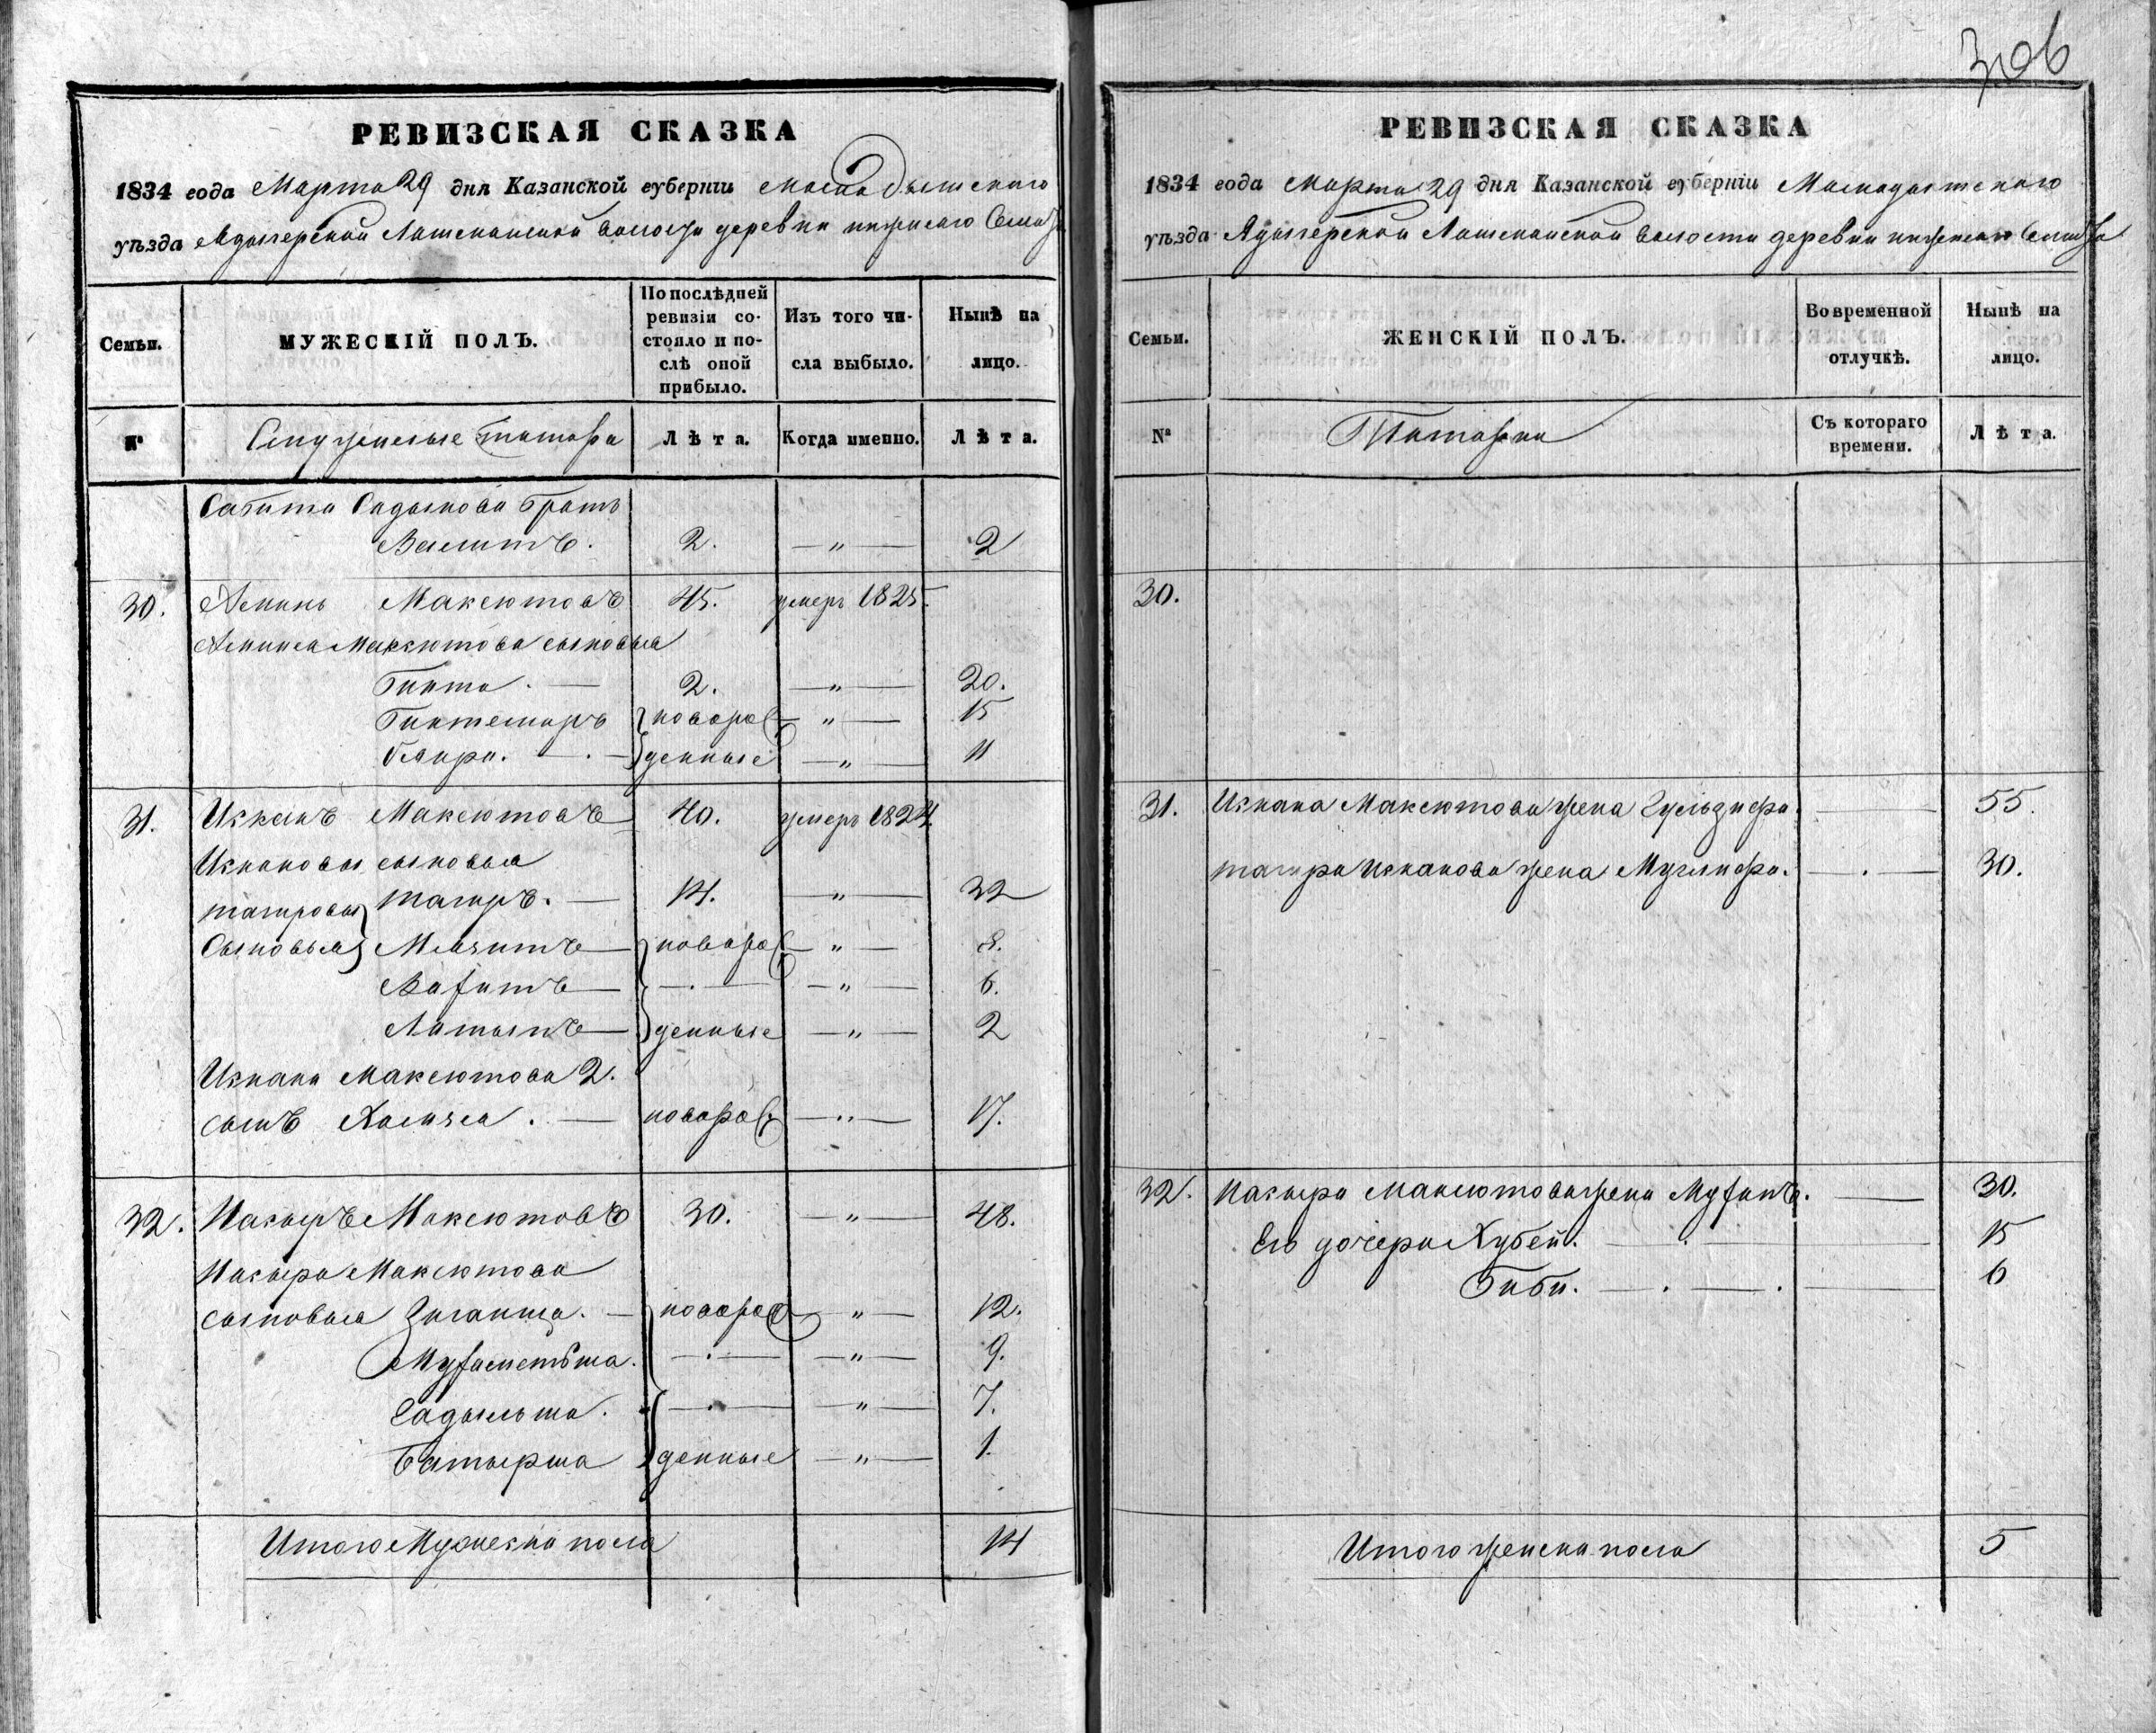 306
РЕВИЗСКАЯ СКАЗКА
1834 года Марта 29 дня Казанской губерніи Мамадышскаго
уѣзда волости деревни нижнего
Семьи. МУЖЕСКІЙ ПОЛЪ. По послѣдней ревизіи состояло и послѣ оной прибыло. Изъ того числа выбыло. Нынѣ на лицо.
№ Служилые татары Лѣта. Когда именно. Лѣта.
Садыкова братъ
Валитъ. 2. — " — 2
30. Аминь Максютовъ 45. умеръ 1825.
Амина Максютова сыновья
Гинта. — 2. — " — 20.
Гинтемиръ новоро — " — 15
Бакри. — денные — " — 11
31. Искакъ Максютовъ 40. умеръ 1824.
Искаковы сыновья
тагировы тагиръ. — 14. — " — 32
сыновья Мязитъ — новоро — " — 8.
Вафитъ — — . — — " — 6.
Латыпъ — денные — " — 2
Искака Максютова 2.
сынъ Хамза. — новоро — " — 17.
32. Насыръ Максютовъ 30. — " — 48.
Насыра Максютова
сыновья Зиганша. — новоро — " — 12.
Мухаметша. — . — — " — 9.
Садыкша. — . — — " — 7.
Батырша денные — " — 1.
Итого Мужеска пола 14
РЕВИЗСКАЯ СКАЗКА
1834 года Марта 29 дня Казанской губерніи Мамадышскаго
уѣзда волости деревни нижнего
Семьи. ЖЕНСКІЙ ПОЛЪ. Во временной отлучкѣ. Нынѣ на лицо.
№ Татарки Съ котораго времени. Лѣта.
30.
31. Искака Максютова жена — 55.
тагира Искакова жена — . — 30.
32. Насыра Максютова жена — 30.
Его дочери Хубей. — . — 15
Биби. — . — . — 6
Итого женска пола 5